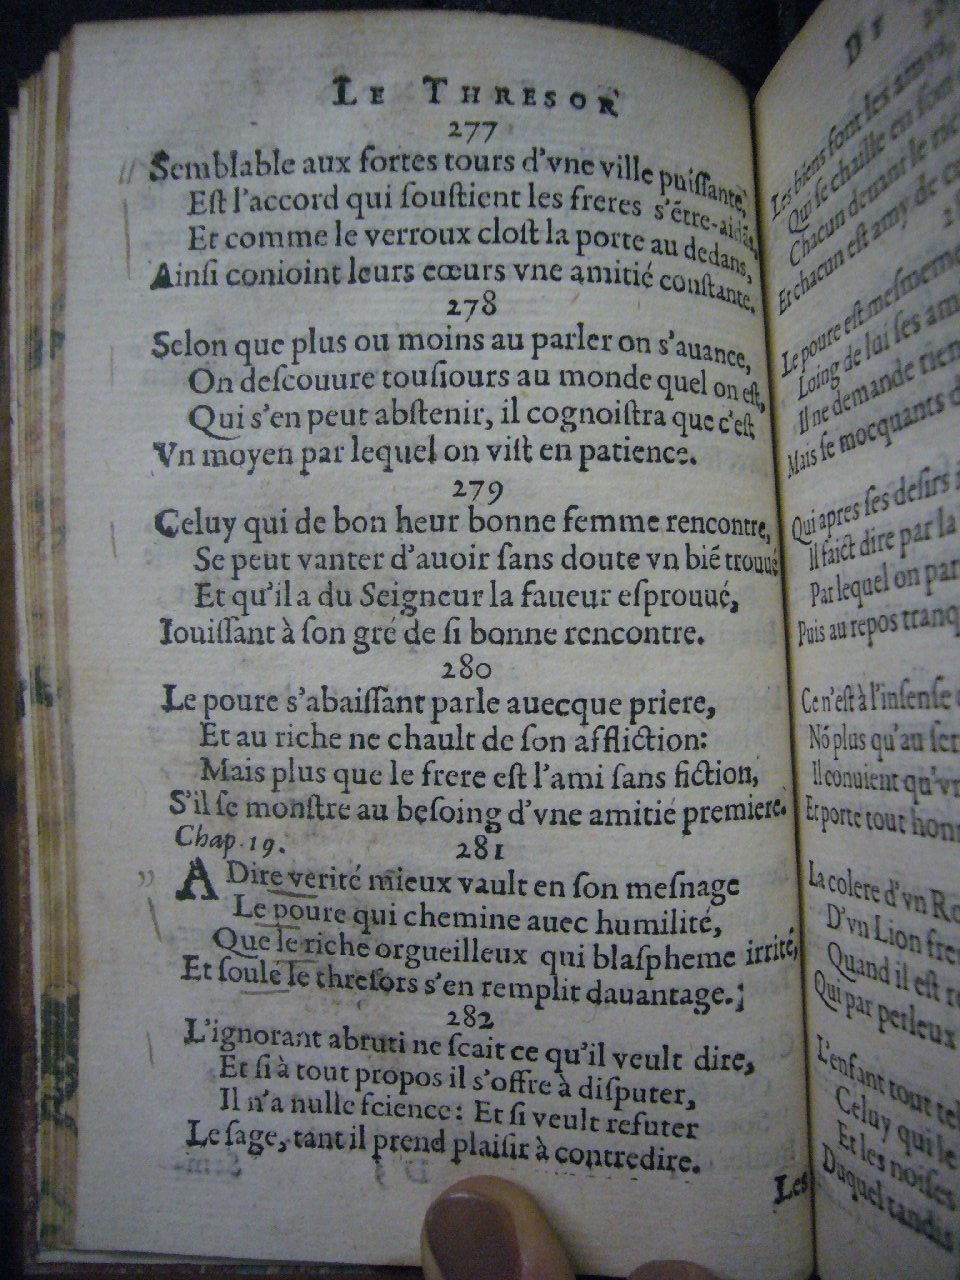 LE THRESOR
277
Semblable aux fortes tours d'vne ville puissante,
Est l'accord qui soustient les freres s'ētre-aidās,
Et comme le verroux clost la porte au dedans,
Ainsi conioint leurs cœurs vne amitié constante.
278
Selon que plus ou moins au parler on s'auance,
On descouure tousiours au monde quel on est,
Qui s'en peut abstenir, il cognoistra que c'est
Vn moyen par lequel on vist en patience.
279
Celuy qui de bon heur bonne femme rencontre,
Se peut vanter d'auoir sans doute vn biē trouué
Et qu'il a du Seigneur la faueur esprouué,
Iouissant à son gré de si bonne rencontre.
280
Le poure s'abaissant parle auecque priere,
Et au riche ne chault de son affliction:
Mais plus que le frere est l'ami sans fiction,
S'il se monstre au besoing d'vne amitié premiere.
Chap. 19.
281
A Dire verité mieux vault en son mesnage
Le poure qui chemine auec humilité,
Que le riche orgueilleux qui blaspheme irrité,
Et soule le thresors s'en remplit dauantage.;
282
L'ignorant abruti ne scait ce qu'il veult dire,
Et si à tout propos il s'offre à disputer,
Il n'a nulle science: Et si veult refuter
Le sage, tant il prend plaisir à contredire.
Les
DI
Les biens font les amys,
Qui se chaille en son
Chacun deuant le ric
Et chacun est amy de ce
Le poure est mesmeme
Loing de lui ses am
Il ne demande rien
Mais se mocquants d
Qui apres ses desirs
Il faict dire par la
Par lequel on par
Puis au repos tranq
Ce n'est à l'insense
Nō plus qu'au ser
Il conuient qu'vn
Et porte tout hon
La colere d'vn Ro
D'vn Lion fre
Quand il est re
Qui par perleux
L'enfant tout tel
Celuy qui le
Et les noises
Duquel tandis